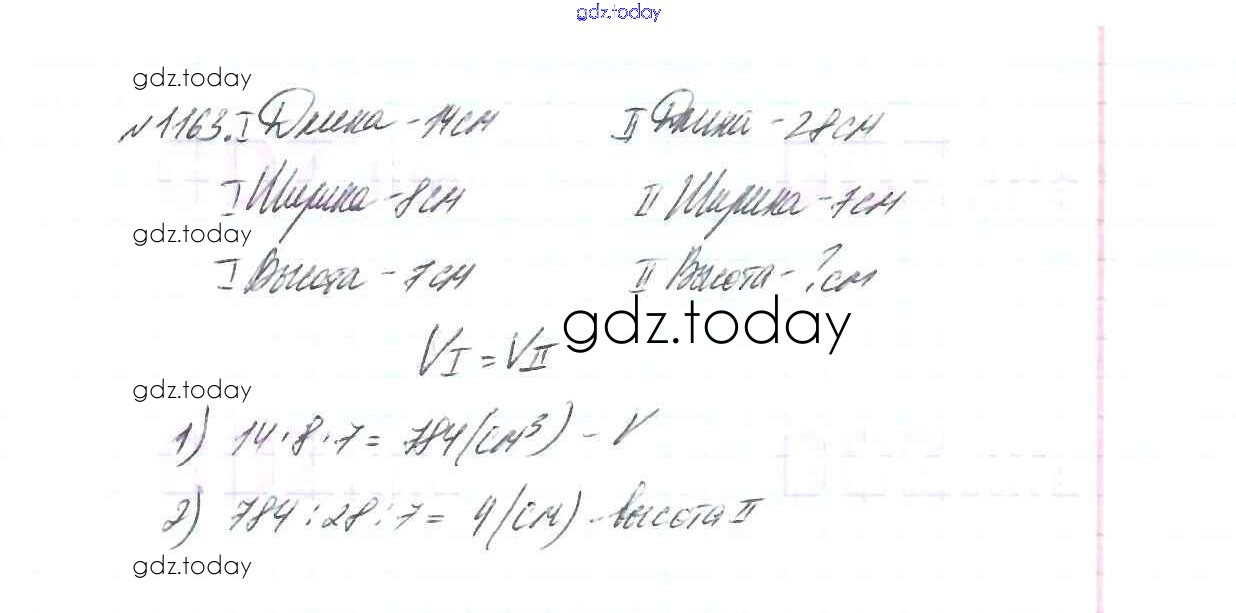 gdz.today
gdz.today
№1163. I Длина - 14 см II Длина - 28 см
I Ширина - 8 см II Ширина - 7 см
gdz.today
I Высота - 7 см II Высота - ? см
gdz.today
VI = VII
gdz.today
1) 14·8·7 = 784 (см³) - V
2) 784 : 28 : 7 = 4 (см) - высота II
gdz.today